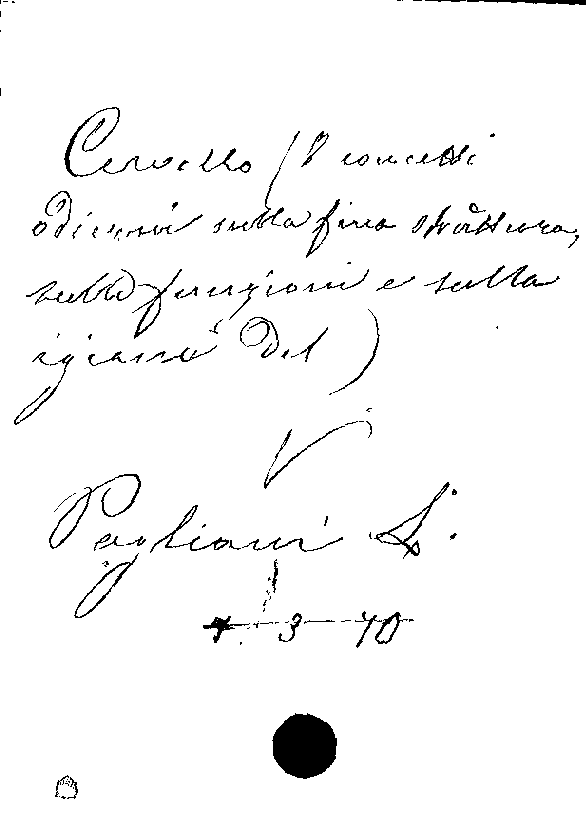 Cervello (I concetti
odierni sulla fina struttura,
sulle funzioni e sulla
igiene del)
V
Pagliani L.
7 3 70